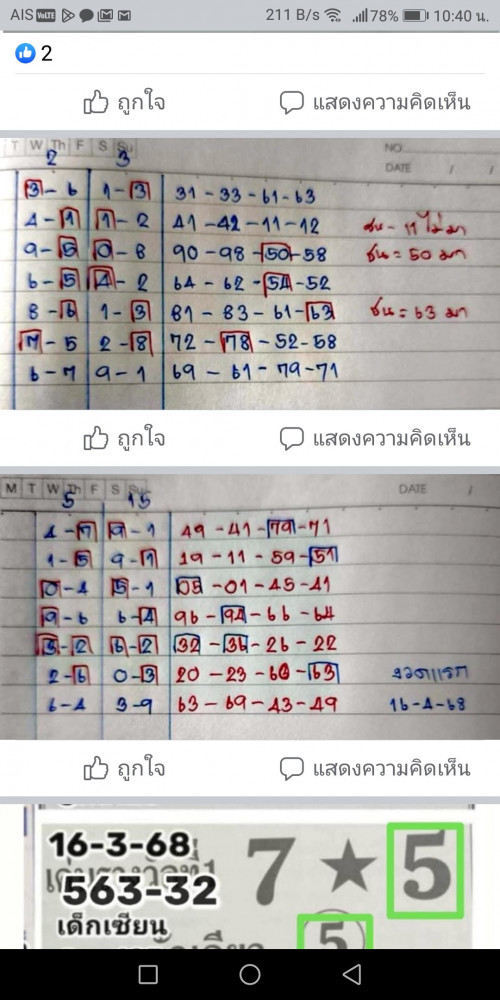 AIS VoLTE 211 B/s 78% 10:40 น.
2
ถูกใจ แสดงความคิดเห็น
T W Th F S Su NO.
DATE / /
2 3
3-6 1-3 31-33-61-63
4-1 1-2 41-42-11-12 ชน - 11 ไม่มา
9-5 0-8 90-98-50-58 ชน = 50 มา
6-5 4-2 64-62-54-52
8-6 1-3 81-83-61-63 ชน = 63 มา
7-5 2-8 72-78-52-58
6-7 9-1 69-61-79-71
ถูกใจ แสดงความคิดเห็น
M T W Th F S Su DATE /
5 15
4-7 9-1 49-41-79-71
1-5 9-1 19-11-59-51
0-4 5-1 05-01-45-41
9-6 6-4 96-94-66-64
3-2 6-2 32-36-26-22
2-6 0-3 20-23-60-63 งวดแรก
6-4 3-9 63-69-43-49 16-4-68
ถูกใจ แสดงความคิดเห็น
16-3-68
7 ★ 5
563-32
เด็กเซียน
5